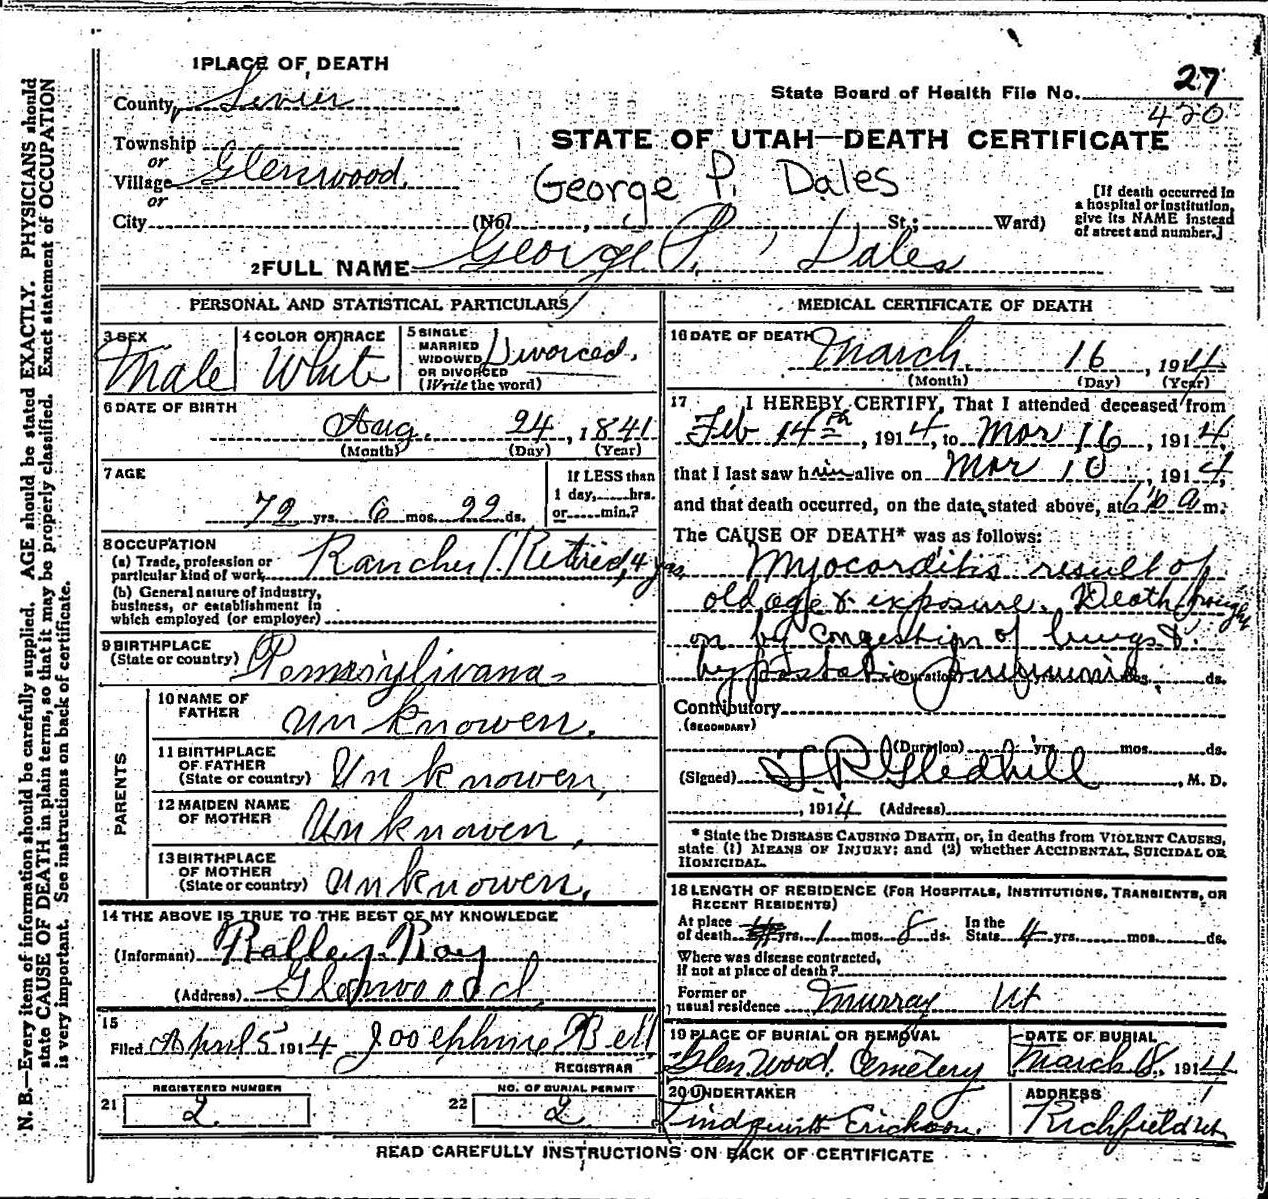 1 PLACE OF DEATH
County Sevier
Township
or
Village Glenwood.
or
City (No. , St.; Ward)
State Board of Health File No. 27
420
STATE OF UTAH—DEATH CERTIFICATE
George P. Dales
[If death occurred in
a hospital or institution,
give its NAME instead
of street and number.]
2 FULL NAME George P. Dales
PERSONAL AND STATISTICAL PARTICULARS
3 SEX
Male
4 COLOR OR RACE
White
5 SINGLE
MARRIED
WIDOWED
OR DIVORCED
(Write the word)
Divorced.
6 DATE OF BIRTH
Aug. 24, 1841
(Month) (Day) (Year)
7 AGE
72 yrs. 6 mos. 22 ds.
If LESS than
1 day, hrs.
or min.?
8 OCCUPATION
(a) Trade, profession or
particular kind of work Rancher / Retired, 4 yrs.
(b) General nature of industry,
business, or establishment in
which employed (or employer)
9 BIRTHPLACE
(State or country) Pennsylivana
PARENTS
10 NAME OF
FATHER
Unknowen.
11 BIRTHPLACE
OF FATHER
(State or country) Unknowen,
12 MAIDEN NAME
OF MOTHER
Unknowen,
13 BIRTHPLACE
OF MOTHER
(State or country) Unknowen.
14 THE ABOVE IS TRUE TO THE BEST OF MY KNOWLEDGE
(Informant) Roy
(Address) Glenwood
15
Filed April 5 1914 Josephine Bell
REGISTRAR
REGISTERED NUMBER
21 2
NO. OF BURIAL PERMIT
22 2
MEDICAL CERTIFICATE OF DEATH
16 DATE OF DEATH March. 16, 1914
(Month) (Day) (Year)
17 I HEREBY CERTIFY, That I attended deceased from
Feb 14th, 1914, to Mar 16, 1914,
that I last saw him alive on Mar 10, 1914,
and that death occurred, on the date stated above, at a m.
The CAUSE OF DEATH* was as follows:
Myocorditis result of
old age & exposure. Death brought
on by congestion of lungs &
hypostatic pneumonia.
(Duration) ds.
Contributory
(SECONDARY)
(Duration) yrs. mos. ds.
(Signed) Gledhill, M. D.
, 1914 (Address)
* State the DISEASE CAUSING DEATH, or, in deaths from VIOLENT CAUSES,
state (1) MEANS OF INJURY; and (2) whether ACCIDENTAL, SUICIDAL OR
HOMICIDAL.
18 LENGTH OF RESIDENCE (FOR HOSPITALS, INSTITUTIONS, TRANSIENTS, OR
RECENT RESIDENTS)
At place
of death yrs. 1 mos. 8 ds.
In the
State 4 yrs. mos. ds.
Where was disease contracted,
if not at place of death?
Former or
usual residence Murray Ut
19 PLACE OF BURIAL OR REMOVAL
Glenwood. Cemetery
DATE OF BURIAL
March 18, 1914
20 UNDERTAKER
Lindquist Erickson.
ADDRESS
Richfield Ut
READ CAREFULLY INSTRUCTIONS ON BACK OF CERTIFICATE
N. B.—Every item of information should be carefully supplied. AGE should be stated EXACTLY. PHYSICIANS should
state CAUSE OF DEATH in plain terms, so that it may be properly classified. Exact statement of OCCUPATION
is very important. See instructions on back of certificate.